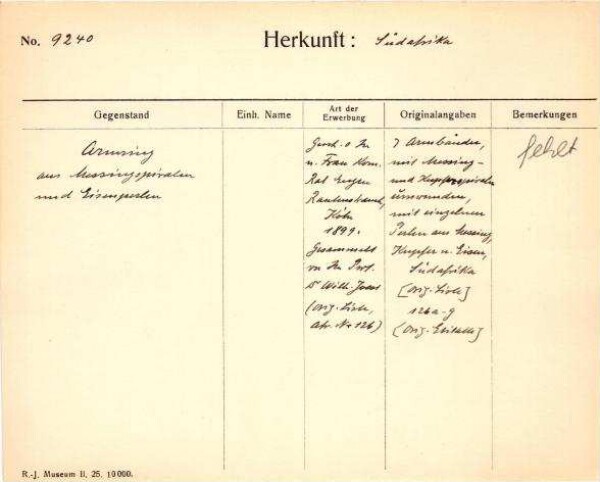 No. 9240
Herkunft: Südafrika
Gegenstand
Einh. Name
Art der
Erwerbung
Originalangaben
Bemerkungen
Armring
aus Messingspiralen
und Eisenperlen
Gesch. d Hn
u. Frau Kom.
Rat Eugen
Rautenstrauch,
Köln
1899.
Gesammelt
von Hn Prof.
Dr Wilh. Joest
(orig. Liste,
No 126)
7 Armbänder,
mit Messing-
und Kupferspiralen
umwunden,
mit einzelnen
Perlen aus Messing,
Kupfer u. Eisen,
Südafrika
[orig. Liste]
126a-g
[orig. Etikette]
fehlt
R.-J. Museum II. 25. 10000.